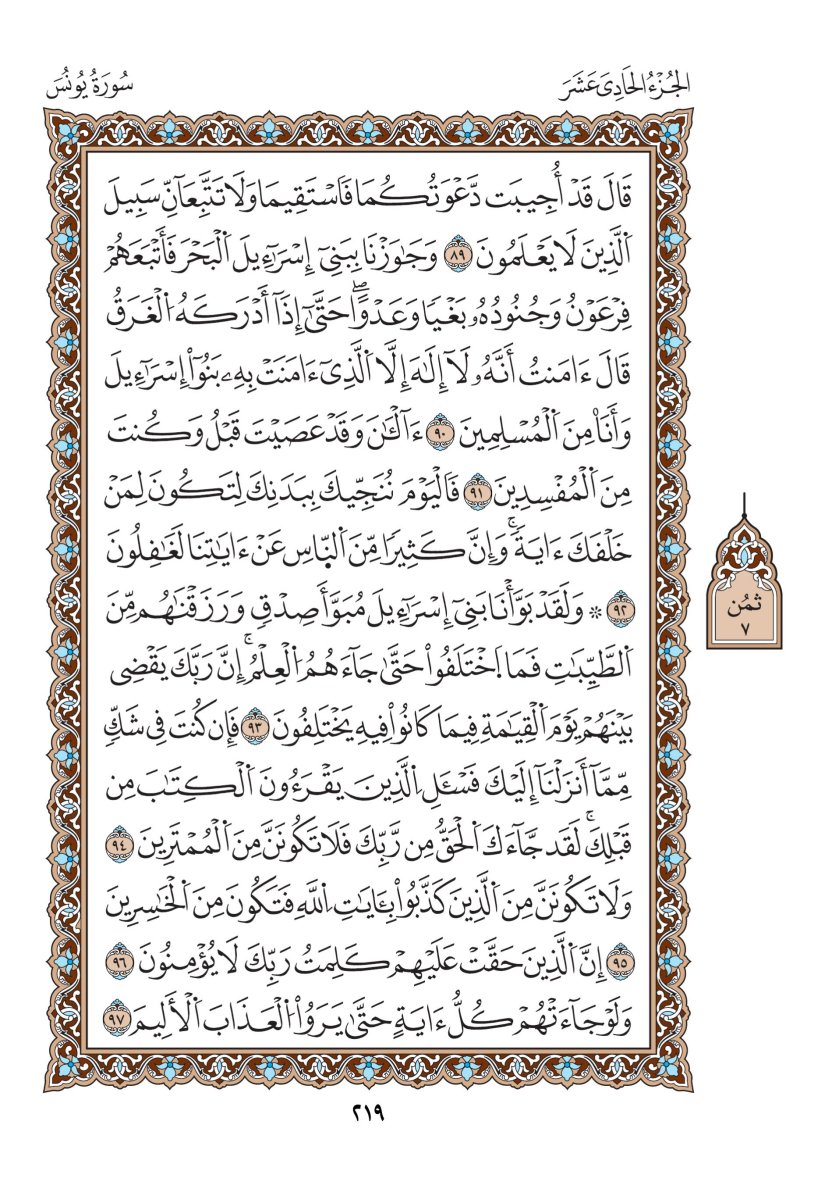 الجُزْءُ الحَادِىَ عَشَرَ
سُورَةُ يُونُسَ
قَالَ قَدْ أُجِيبَت دَّعْوَتُكُمَا فَاَسْتَقِيمَا وَلَا تَتَّبِعَآنِّ سَبِيلَ
اَلَّذِينَ لَا يَعْلَمُونَ ٨٩ وَجَٰوَزْنَا بِبَنِىٓ إِسْرَآءِيلَ اَلْبَحْرَ فَأَتْبَعَهُمْ
فِرْعَوْنُ وَجُنُودُهُۥ بَغْيٗا وَعَدْوًاۖ حَتَّىٰٓ إِذَآ أَدْرَكَهُ اُلْغَرَقُ
قَالَ ءَامَنتُ أَنَّهُۥ لَآ إِلَٰهَ إِلَّا اَلَّذِىٓ ءَامَنَتْ بِهِۦ بَنُوٓاْ إِسْرَآءِيلَ
وَأَنَا۠ مِنَ اَلْمُسْلِمِينَ ٩٠ ءَآلْـَٰٔنَ وَقَدْ عَصَيْتَ قَبْلُ وَكُنتَ
مِنَ اَلْمُفْسِدِينَ ٩١ فَالْيَوْمَ نُنَجِّيكَ بِبَدَنِكَ لِتَكُونَ لِمَنْ
خَلْفَكَ ءَايَةٗۚ وَإِنَّ كَثِيرٗا مِّنَ اَلنَّاسِ عَنْ ءَايَٰتِنَا لَغَٰفِلُونَ
٩٢ ۞ وَلَقَدْ بَوَّأْنَا بَنِىٓ إِسْرَآءِيلَ مُبَوَّأَ صِدْقٖ وَرَزَقْنَٰهُم مِّنَ
اَلطَّيِّبَٰتِ فَمَا اَخْتَلَفُواْ حَتَّىٰ جَآءَهُمُ اُلْعِلْمُۚ إِنَّ رَبَّكَ يَقْضِى
بَيْنَهُمْ يَوْمَ اَلْقِيَٰمَةِ فِيمَا كَانُواْ فِيهِ يَخْتَلِفُونَ ٩٣ فَإِن كُنتَ فِى شَكّٖ
مِّمَّآ أَنزَلْنَآ إِلَيْكَ فَسْـَٔلِ اِلَّذِينَ يَقْرَءُونَ اَلْكِتَٰبَ مِن
قَبْلِكَۚ لَقَد جَّآءَكَ اَلْحَقُّ مِن رَّبِّكَ فَلَا تَكُونَنَّ مِنَ اَلْمُمْتَرِينَ ٩٤
وَلَا تَكُونَنَّ مِنَ اَلَّذِينَ كَذَّبُواْ بِـَٔايَٰتِ اِللَّهِ فَتَكُونَ مِنَ اَلْخَٰسِرِينَ
٩٥ إِنَّ اَلَّذِينَ حَقَّتْ عَلَيْهِمْ كَلِمَتُ رَبِّكَ لَا يُؤْمِنُونَ ٩٦
وَلَوْ جَآءَتْهُمْ كُلُّ ءَايَةٍ حَتَّىٰ يَرَوُاْ اُلْعَذَابَ اَلْأَلِيمَ ٩٧
ثُمُن
٧
٢١٩